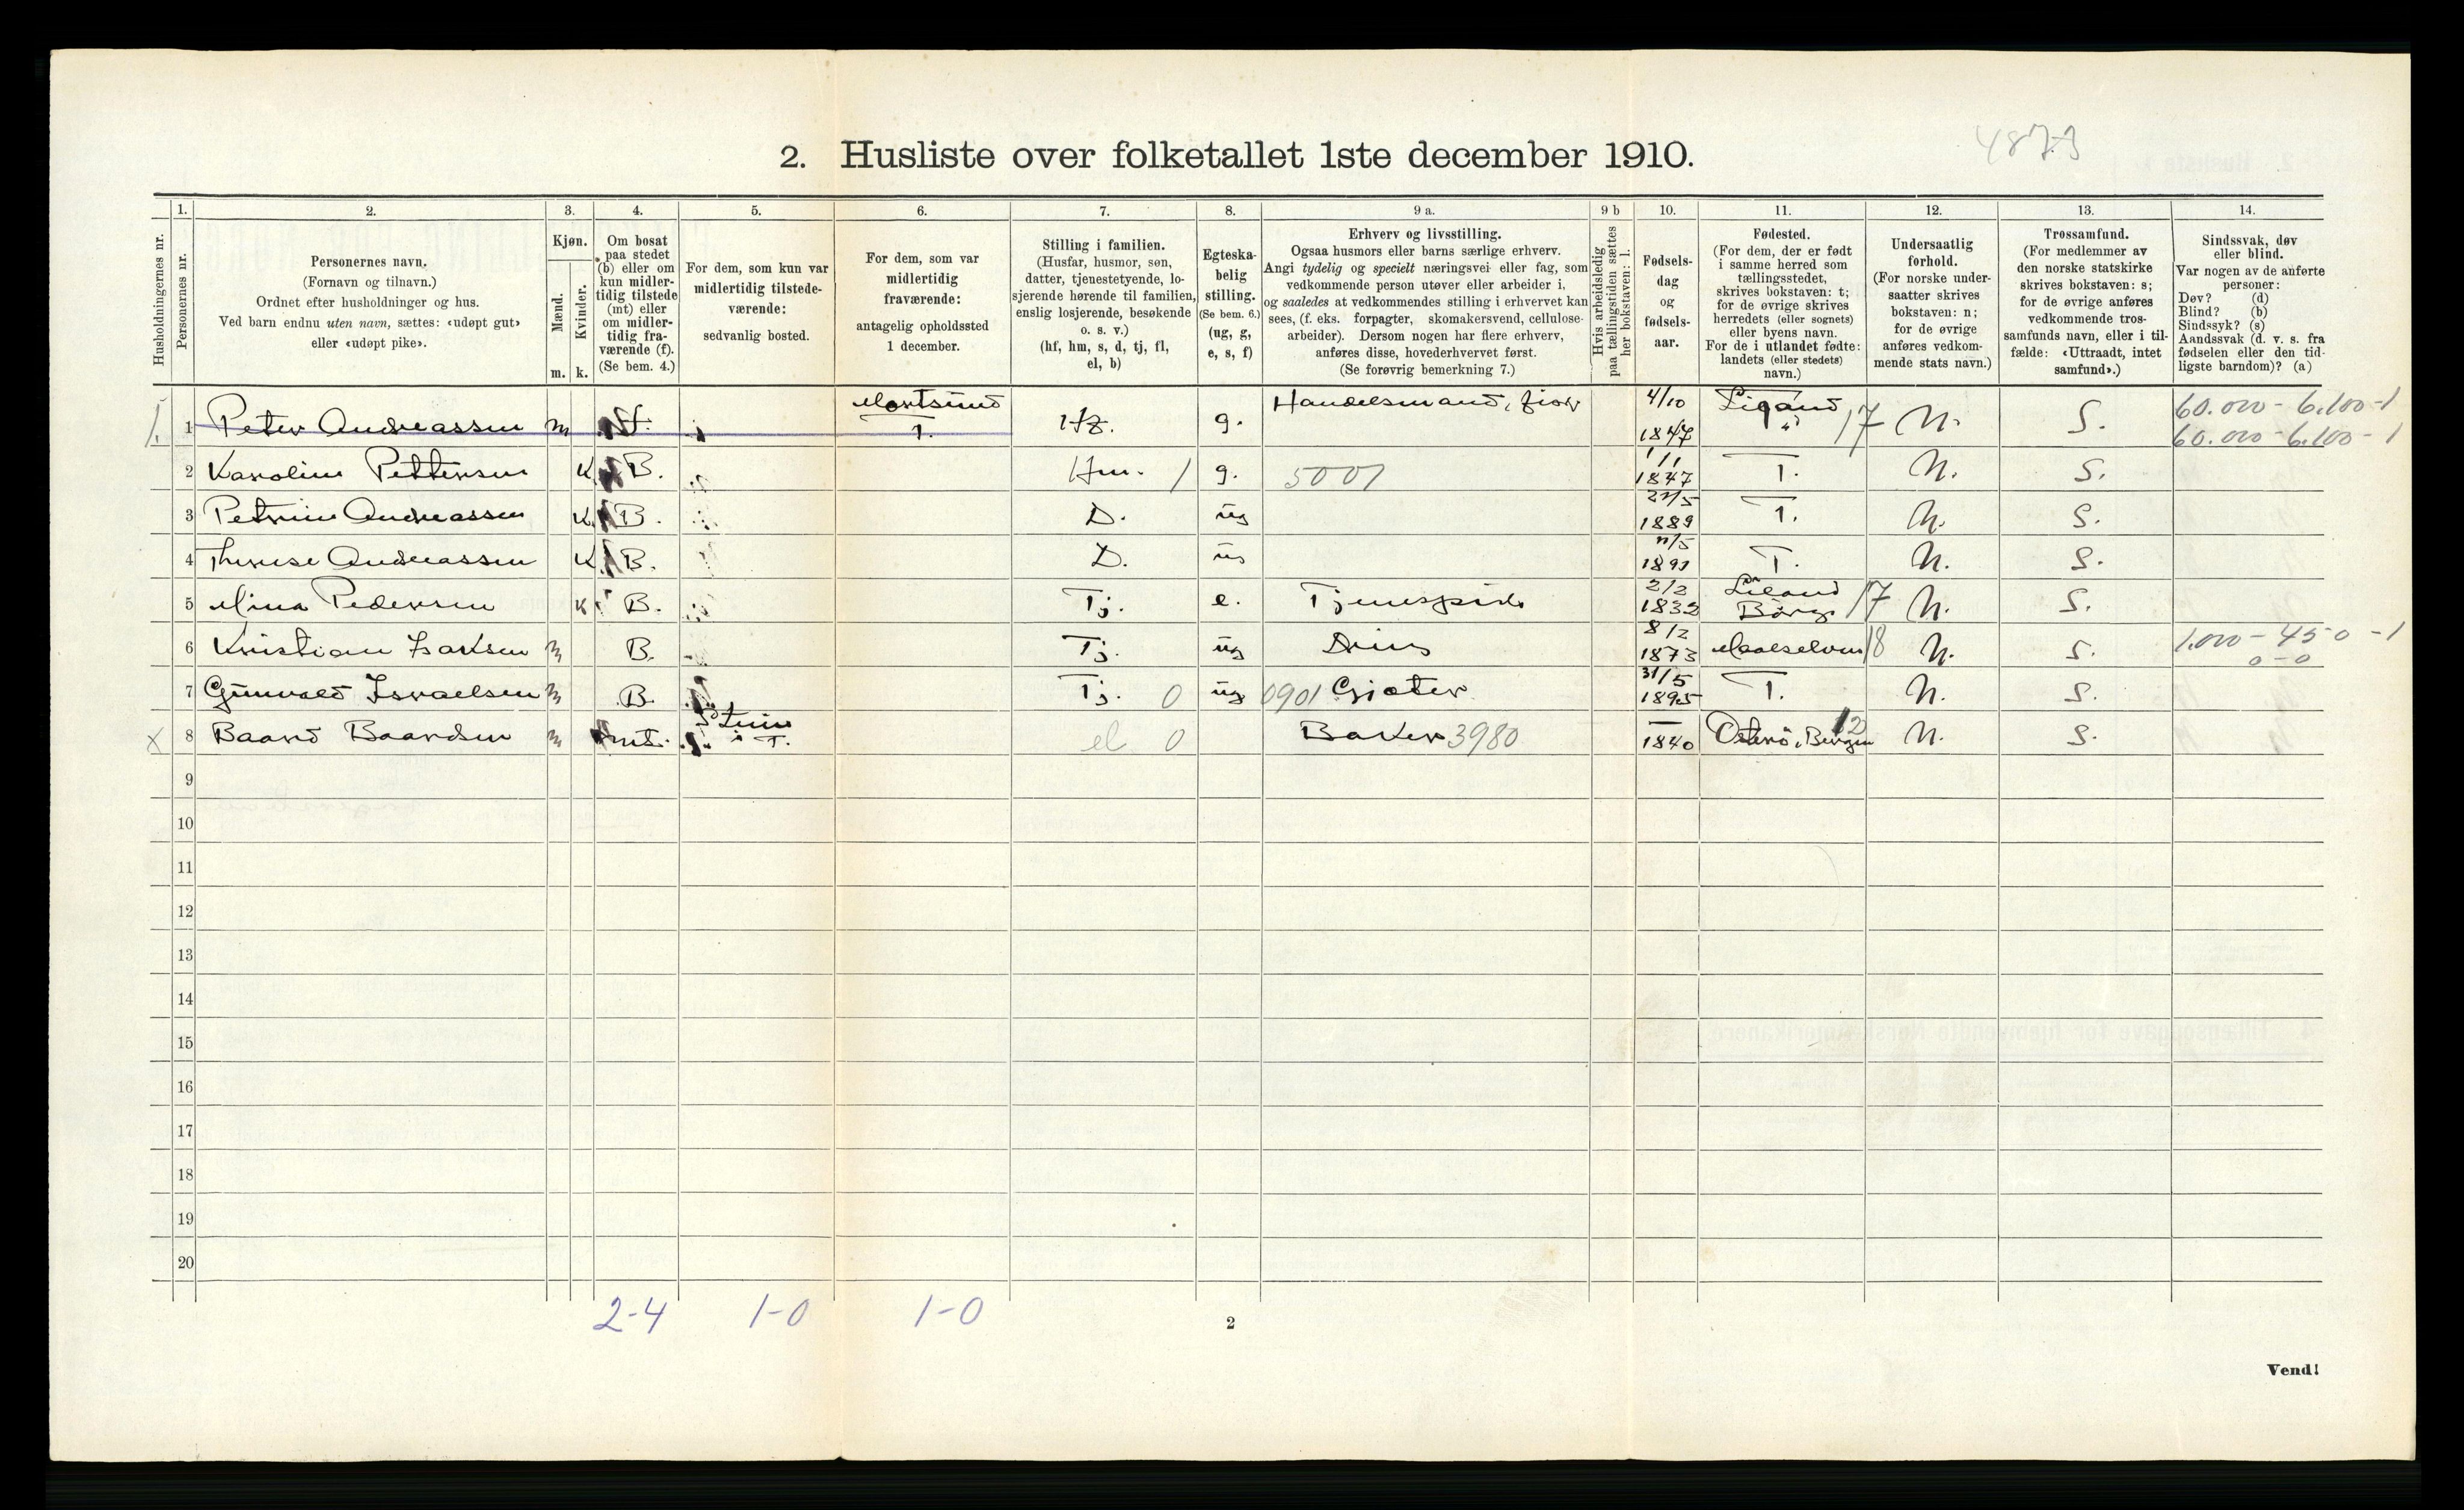 4873
2. Husliste over folketallet 1ste december 1910.
Husholdningernes nr.
1.
Personernes nr.
2.
Personernes navn.
(Fornavn og tilnavn.)
Ordnet efter husholdninger og hus.
Ved barn endnu uten navn, sættes: «udøpt gut»
eller «udøpt pike».
3.
Kjøn.
Mænd.
Kvinder.
m. k.
4.
Om bosat
paa stedet
(b) eller om
kun midler-
tidig tilstede
(mt) eller
om midler-
tidig fra-
værende (f).
(Se bem. 4.)
5.
For dem, som kun var
midlertidig tilstede-
værende:
sedvanlig bosted.
6.
For dem, som var
midlertidig
fraværende:
antagelig opholdssted
1 december.
7.
Stilling i familien.
(Husfar, husmor, søn,
datter, tjenestetyende, lo-
sjerende hørende til familien,
enslig losjerende, besøkende
o. s. v.)
(hf, hm, s, d, tj, fl,
el, b)
8.
Egteska-
belig
stilling.
(Se bem. 6.)
(ug, g,
e, s, f)
9 a.
Erhverv og livsstilling.
Ogsaa husmors eller barns særlige erhverv.
Angi tydelig og specielt næringsvei eller fag, som
vedkommende person utøver eller arbeider i,
og saaledes at vedkommendes stilling i erhvervet kan
sees, (f. eks. forpagter, skomakersvend, cellulose-
arbeider). Dersom nogen har flere erhverv,
anføres disse, hovederhvervet først.
(Se forøvrig bemerkning 7.)
9 b
Hvis arbeidsledig
paa tællingstiden sættes
her bokstaven: l.
10.
Fødsels-
dag
og
fødsels-
aar.
11.
Fødested.
(For dem, der er født
i samme herred som
tællingsstedet,
skrives bokstaven: t;
for de øvrige skrives
herredets (eller sognets)
eller byens navn.
For de i utlandet fødte:
landets (eller stedets)
navn.)
12.
Undersaatlig
forhold.
(For norske under-
saatter skrives
bokstaven: n;
for de øvrige
anføres vedkom-
mende stats navn.)
13.
Trossamfund.
(For medlemmer av
den norske statskirke
skrives bokstaven: s;
for de øvrige anføres
vedkommende tros-
samfunds navn, eller i til-
fælde: «Uttraadt, intet
samfund».)
14.
Sindssvak, døv
eller blind.
Var nogen av de anførte
personer:
Døv? (d)
Blind? (b)
Sindssyk? (s)
Aandssvak (d. v. s. fra
fødselen eller den tid-
ligste barndom)? (a)
1 Peter Andreassen m f. Mortsund T. g. Handelsmand, 4/10 1847 17 N. S. 60.000 - 6.100-1
60.000 - 6.100 - 1
2 Karoline Pettersen K B. Hm. 1 g. 5001 1/1 1847 T. N. S.
3 Petrine Andreassen K B. D. ug 1889 T. N. S.
4 Therese Andreassen K B. D. ug 1891 T. N. S.
5 Mina Pedersen K B. Tj. e. 2/2 1832 17 N. S.
6 Kristian Isaksen m B. Tj. ug 8/2 1873 Maalselven 18 N. S. 1.000 - 450 - 1
0 - 0
7 Gunvald Israelsen m B. Tj. 0 ug 0901 Gjæter 31/5 1895 T. N. S.
x 8 Baard Baardsen m mt. i T. el 0 Baker 3980 — 1840 Osterö, Bergen 12 N. S.
9
10
11
12
13
14
15
16
17
18
19
20
2-4 1-0 1-0
2
Vend!